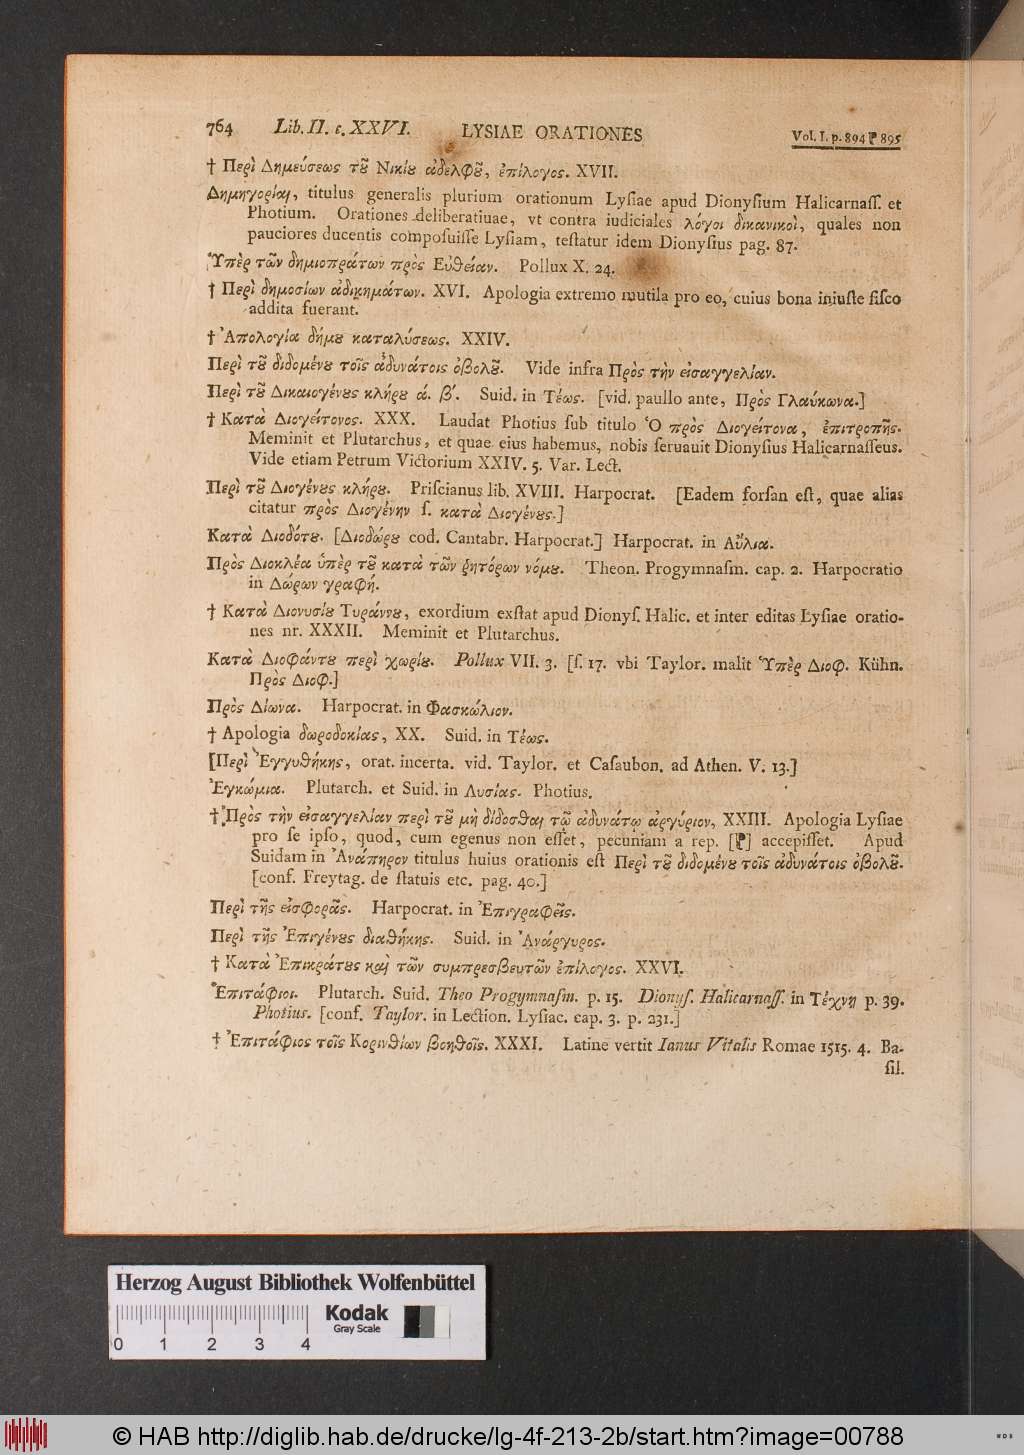 764 Lib. II. c. XXVI. LYSIAE ORATIONES Vol. I. p. 894 ⁋ 895
† Περὶ Δημεύσεως τȣ͂ Νικίȣ ἀδελφȣ͂, ἐπίλογος. XVII.
Δημηγορίαι, titulus generalis plurium orationum Lyſiae apud Dionyſium Halicarnaſſ. et
Photium. Orationes deliberatiuae, vt contra iudiciales λόγοι δικανικοὶ, quales non
pauciores ducentis compoſuiſſe Lyſiam, teſtatur idem Dionyſius pag. 87.
Ὑπὲρ τῶν δημιοπράτων πρὸς Εὐθείαν. Pollux X. 24.
† Περὶ δημοσίων ἀδικημάτων. XVI. Apologia extremo mutila pro eo, cuius bona iniuſte fiſco
addita fuerant.
† Ἀπολογία δήμȣ καταλύσεως. XXIV.
Περὶ τȣ͂ διδομένȣ τοῖς ἀδυνάτοις ὀβολȣ͂. Vide infra Πρὸς τὴν εἰσαγγελίαν.
Περὶ τȣ͂ Δικαιογένȣς κλήρȣ ά. β'. Suid. in Τέως. [vid. paullo ante, Πρὸς Γλαύκωνα.]
† Κατὰ Διογείτονος. XXX. Laudat Photius ſub titulo Ὁ πρὸς Διογείτονα, ἐπιτροπῆς.
Meminit et Plutarchus, et quae eius habemus, nobis ſeruauit Dionyſius Halicarnaſſeus.
Vide etiam Petrum Victorium XXIV. 5. Var. Lect.
Περὶ τȣ͂ Διογένȣς κλήρȣ. Priſcianus lib. XVIII. Harpocrat. [Eadem forſan eſt, quae alias
citatur πρὸς Διογένην ſ. κατὰ Διογένȣς.]
Κατὰ Διοδότȣ. [Διοδώρȣ cod. Cantabr. Harpocrat.] Harpocrat. in Αὔλια.
Πρὸς Διοκλέα ὑπὲρ τȣ͂ κατὰ τῶν ῥητόρων νόμȣ. Theon. Progymnaſm. cap. 2. Harpocratio
in Δώρων γραφή.
† Κατὰ Διονυσίȣ Τυράννȣ, exordium exſtat apud Dionyſ. Halic. et inter editas Lyſiae oratio-
nes nr. XXXII. Meminit et Plutarchus.
Κατὰ Διοφάντȣ περὶ χωρίȣ. Pollux VII. 3. [ſ. 17. vbi Taylor. malit Ὑπὲρ Διοφ. Kühn.
Πρὸς Διοφ.]
Πρὸς Δίωνα. Harpocrat. in Φασκώλιον.
† Apologia δωροδοκίας, XX. Suid. in Τέως.
[Περὶ Ἐγγυθήκης, orat. incerta. vid. Taylor. et Caſaubon. ad Athen. V. 13.]
Ἐγκώμια. Plutarch. et Suid. in Λυσίας. Photius.
† Πρὸς τὴν εἰσαγγελίαν περὶ τȣ͂ μὴ δίδοσθαι τῷ ἀδυνάτω ἀργύριον, XXIII. Apologia Lyſiae
pro ſe ipſo, quod, cum egenus non eſſet, pecuniam a rep. [⁋] accepiſſet. Apud
Suidam in Ἀνάπηρον titulus huius orationis eſt Περὶ τȣ͂ διδομένȣ τοῖς ἀδυνάτοις ὀβολȣ͂.
[conf. Freytag. de ſtatuis etc. pag. 40.]
Περὶ τῆς εἰσφορᾶς. Harpocrat. in Ἐπιγραφεῖς.
Περὶ τῆς Ἐπιγένȣς διαθήκης. Suid. in Ἀνάργυρος.
† Κατὰ Ἐπικράτȣς καὶ τῶν συμπρεσβευτῶν ἐπίλογος. XXVI.
Ἐπιτάφιοι. Plutarch. Suid. Theo Progymnaſm. p. 15. Dionyſ. Halicarnaſſ. in Τέχνη p. 39.
Photius. [conf. Taylor. in Lection. Lyſiac. cap. 3. p. 231.]
† Ἐπιτάφιος τοῖς Κορινθίων βοηθοῖς. XXXI. Latine vertit Ianus Vitalis Romae 1515. 4. Ba-
ſil.
Herzog August Bibliothek Wolfenbüttel
Kodak
Gray Scale
0 1 2 3 4
© HAB http://diglib.hab.de/drucke/lg-4f-213-2b/start.htm?image=00788